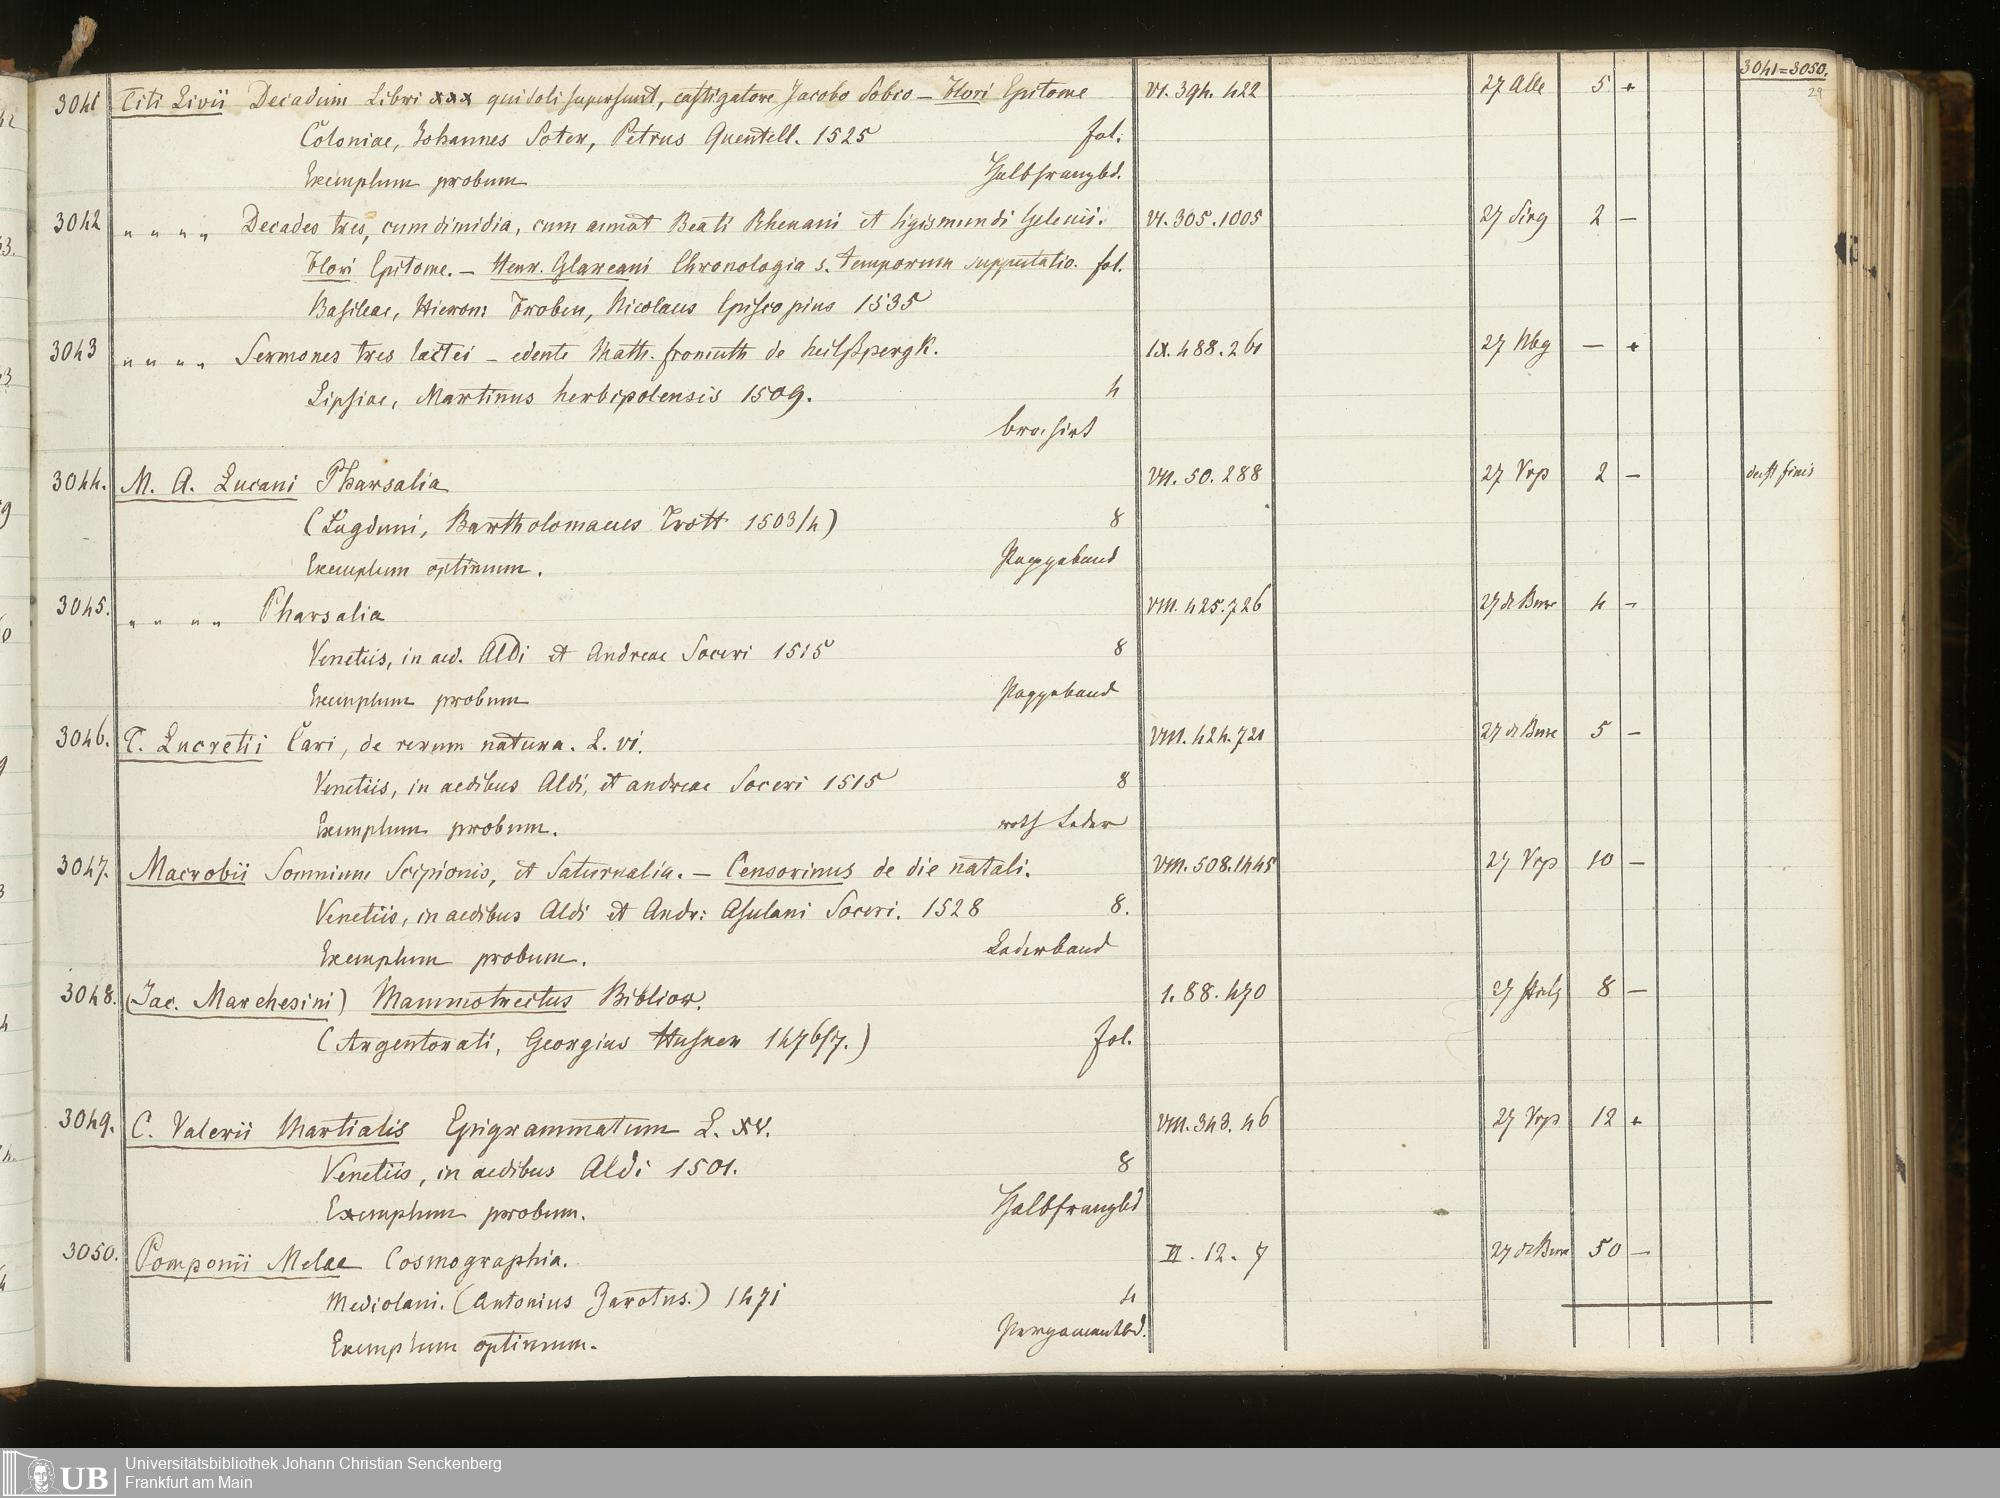 3041=3050.
29
3041 Titi Livii Decadum Libri xxx qui soli supersunt, castigatore Jacobo Sobio – Flori Epitome VI. 394. 422 27 Alle 5 +
Coloniae, Johannes Soter, Petrus Quentell. 1525 fol.
Exemplum probum Halbfranzbd.
3042 " " " " Decades tres, cum dimidia, cum annot Beati Rhenani et Sigismundi Gelenii. VI. 305. 1005 27 2 –
Flori Epitome. – Henr. Glareani Chronologia s. temporum supputatio. fol.
Basileae, Hieron: Froben, Nicolaus Episcopius 1535
3043 " " " " Sermones tres lactei – edente Math. fronmuth de heilßpergk. IX. 488. 261 27 Nbg – +
Lipsiae, Martinus herbipolensis 1509. 4
brosirt
3044. M. A. Lucani Pharsalia VIII. 50. 288 27 2 – deest finis
(Lugduni, Bartholomaeus Trott 1503/4) 8
Exemplum optimum. Pappeband
3045. " " " " Pharsalia VIII. 425. 726 27 de Bure 4 –
Venetiis, in aed. Aldi et Andreae Soceri 1515 8
Exemplum probum Pappeband
3046. T. Lucretii Cari, de rerum natura. L. VI. VIII. 424. 721 27 de Bure 5 –
Venetiis, in aedibus Aldi, et andreae Soceri 1515 8
Exemplum probum. roth Leder
3047. Macrobii Somnium Scipionis, et Saturnalia. – Censorinus de die natali. VIII. 508. 1445 27 10 –
Venetiis, in aedibus Aldi et Andr: Asulani Soceri. 1528 8.
Exemplum probum. Lederband
3048. (Jac. Marchesini) Mammotrectus Biblior. 1. 88. 470 27 8 –
(Argentorati, Georgius Husner 1476/7.) fol.
3049. C. Valerii Martialis Epigrammatum L. XV. VIII. 343. 46 27 12 +
Venetiis, in aedibus Aldi 1501. 8
Exemplum probum. Halbfranzbd
3050. Pomponii Melae Cosmographia. VI. 12. 7 27 de Bure 50 –
Mediolani. (Antonius Zarotus.) 1471 4
Exemplum optimum. Pergamentbd.
UB
Universitätsbibliothek Johann Christian Senckenberg
Frankfurt am Main